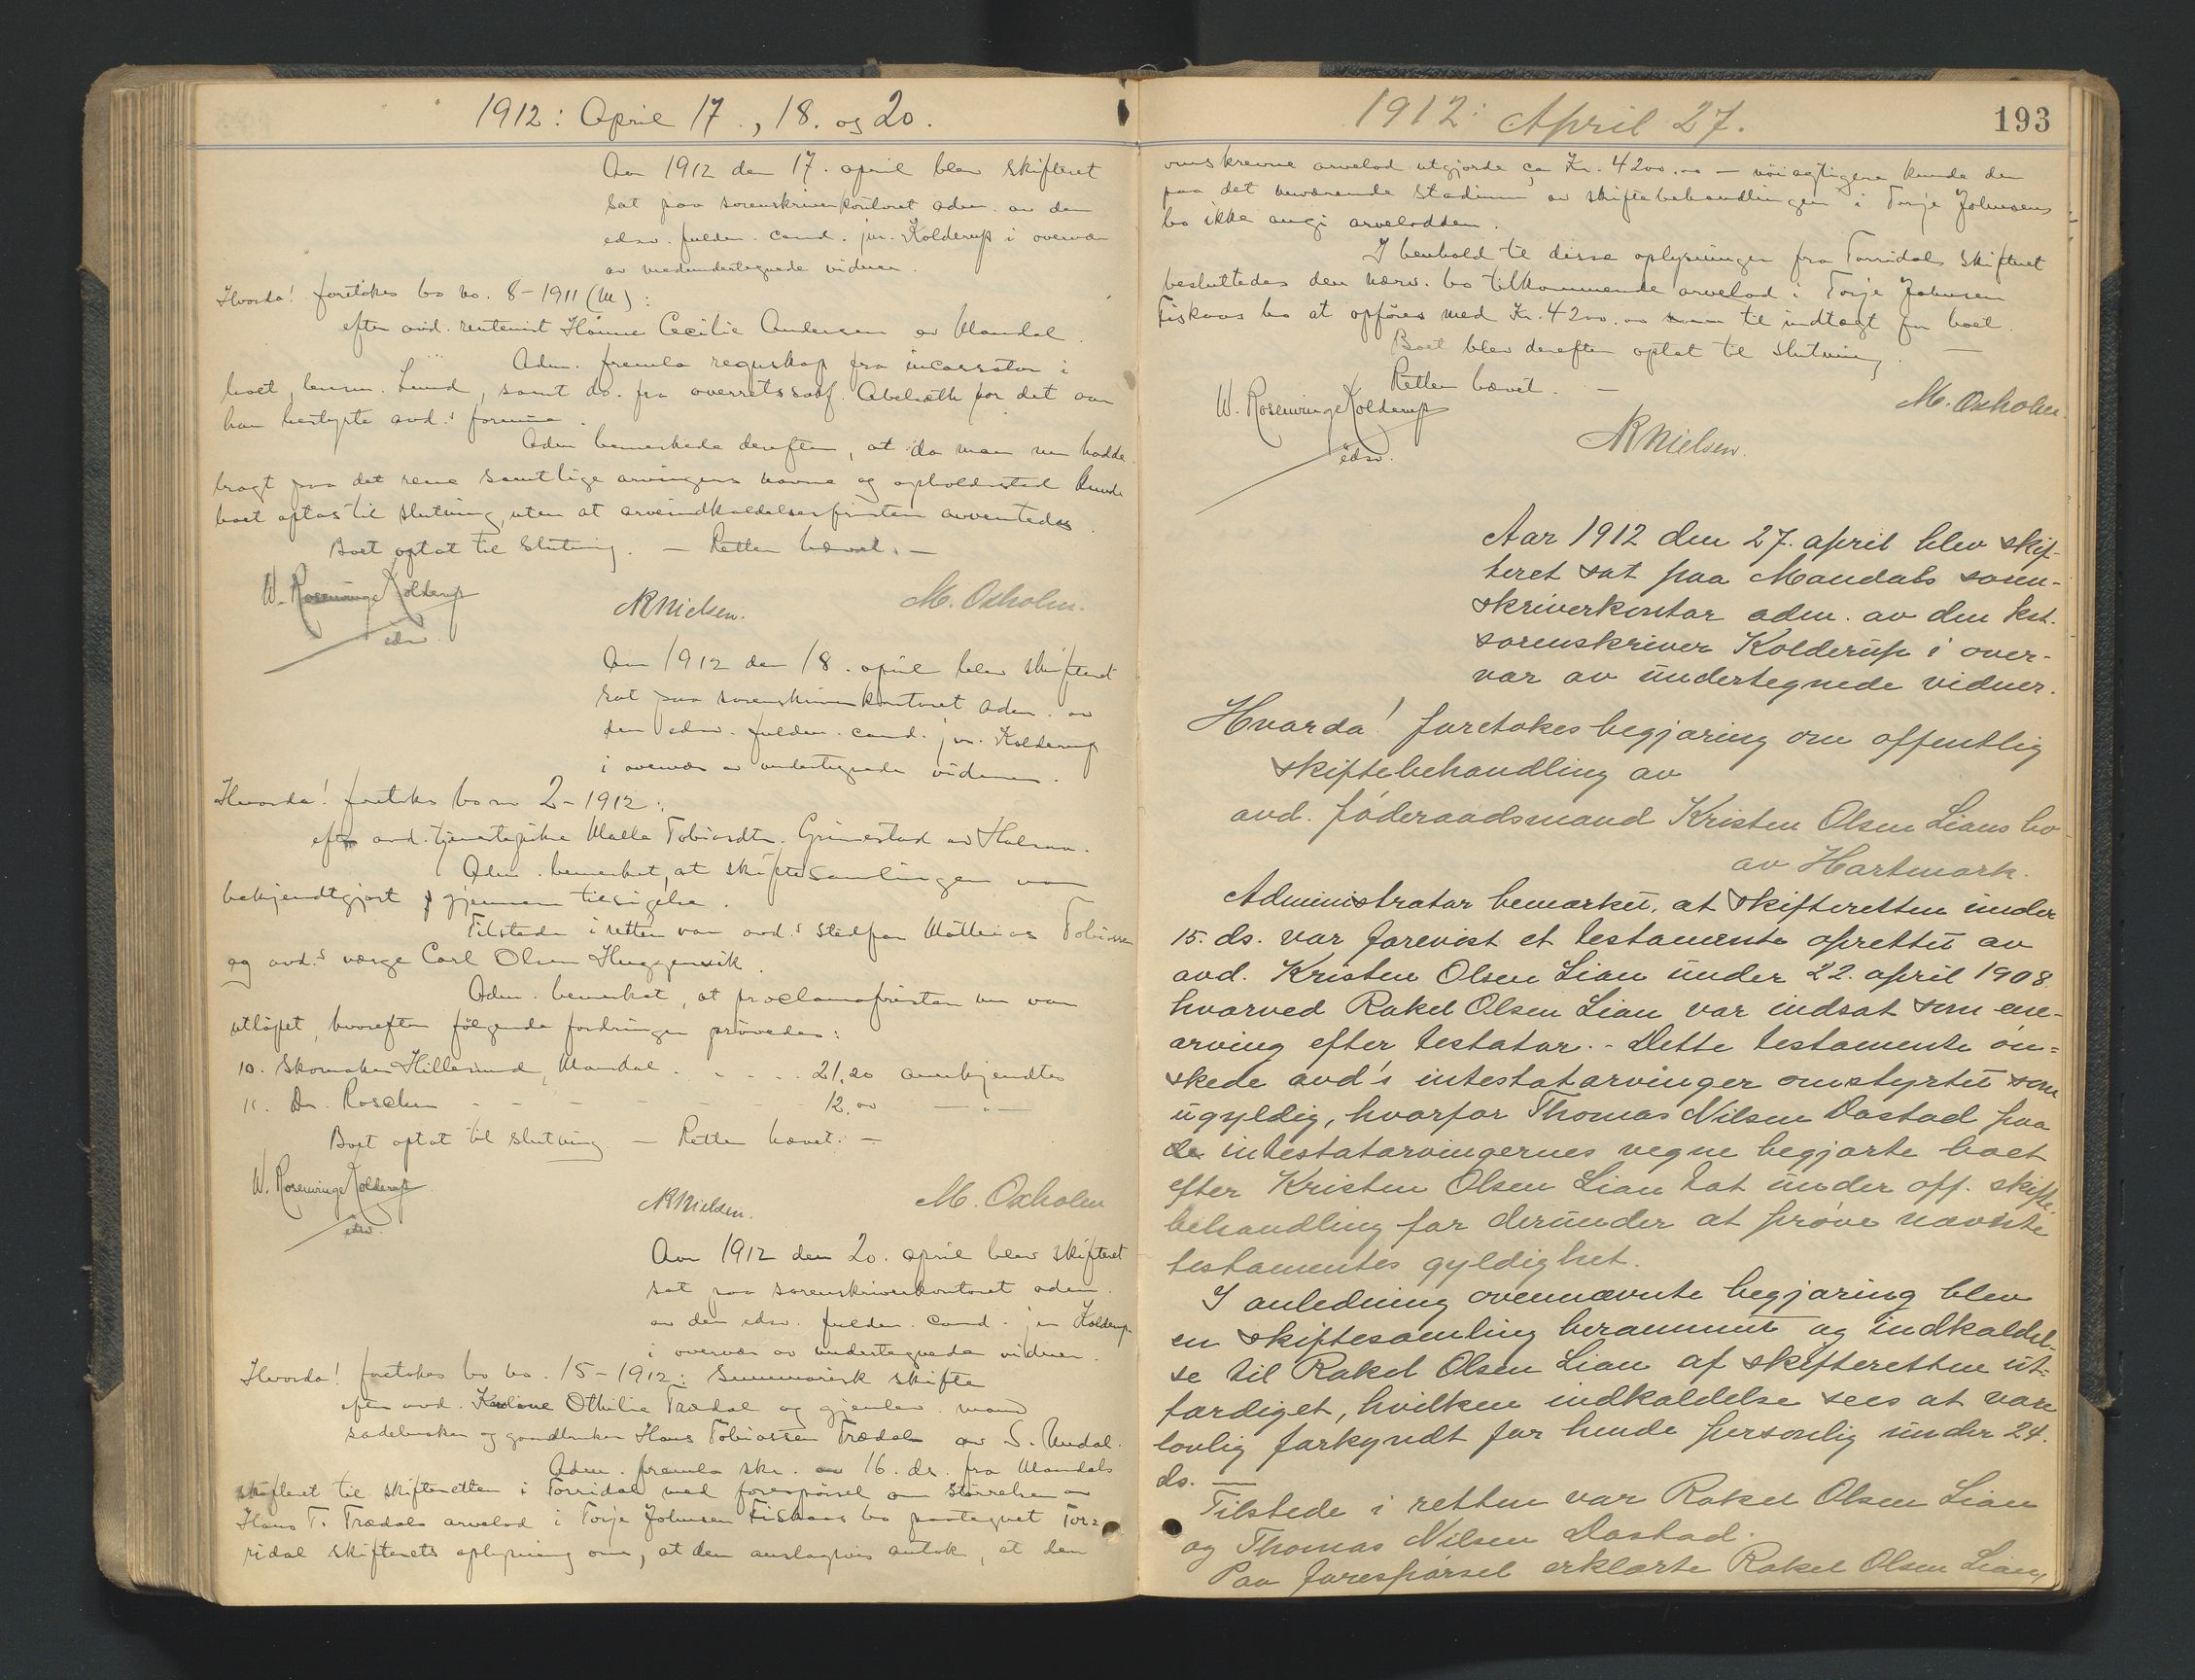 1912: April 17., 18. og 20.
Aar 1912 den 17. april blev skifteret
sat paa sorenskriverkontoret adm. av den
edsv. fuldm. cand. jur. Kolderup i overvær
av medundertegnede vidner.
Hvorda! foretokes bo no. 8-1911 (M):
efter avd. rentenist Hanne Cecilie Andersen av Mandal.
Adm. fremla regnskap fra incassator i
boet, Lund, samt do. fra overretssakf. for det av
ham bestyrte avd.s formue.
Adm bemerkede derefter, at da man nu hadde
bragt paa det rene samtlige arvingers navne og opholdssted kunde
boet optas til slutning, uten at arveindkaldelsesfristen avventedes.
Boet optat til slutning. — Retten hævet. —
W. Rosenvinge Kolderup
edsv.
NRNielsen.
M. Oxholm.
Aar 1912 den 18. april blev skifteret
sat paa sorenskriverkontoret adm. av
den edsv. fuldm. cand. jur. Kolderup
i overvær av undertegnede vidner.
Hvorda! foretokes bo no 2-1912:
efter avd. tjenestepike Malla Tobiasdtr. Grimestad av Halsaa.
Adm. bemerket, at skiftesamlingen var
bekjendtgjort gjennem tilsigelse.
Tilstede i retten var avd.s stedfar Tobiassen
og avd.s værge Carl Olsen Huggenvik.
Adm. bemerket, at proclamafristen nu var
utløpet, hvorefter følgende fordringer prøvedes:
10. Skomaker Hillesund, Mandal. . . . . 21,20 anerkjendtes
11. Dr. Roscher - - - - - - 12.00 — " —
Boet optat til slutning — Retten hævet. —
W. Rosenvinge Kolderup
edsv.
NRNielsen.
M. Oxholm
Aar 1912 den 20. april blev skifteret
sat paa sorenskriverkontoret adm.
av den edsv. fuldm. cand. jur Kolderup
i overvær av undertegnede vidner.
Hvorda! foretokes bo no. 15-1912: Summarisk skifte
efter avd. Karoline Othilie Trædal og gjenlev. mand
sadelmaker og gaardbruker Hans Tobiassen Trædal av S. Undal.
Adm. fremla skr. av 16. ds. fra Mandals
skifteret til skifteretten i Torridal med forespørsel om størrelsen av
Hans T. Trædals arvelod i Torje Johnsen Fiskaas bo paategnet Tor=
ridal skifterets oplysning om, at den anslagsvis antok, at den
1912: April 27.
193
omskrevne arvelod utgjorde ca Kr. 4200.00 — nøiagtigere kunde den
paa det nuværende stadium av skiftebehandlingen i Torje Johnsens
bo ikke angi arvelodden.
I henhold til disse oplysninger fra Torridals skifteret
besluttedes den nærv. bo tilkommende arvelod i Torje Johnsen
Fiskaas bo at opføres med Kr. 4200.00 til indtægt for boet.
Boet blev derefter optat til slutning. —
Retten hævet. —
W. Rosenvinge Kolderup
edsv.
M. Oxholm.
NRNielsen.
Aar 1912 den 27. april blev skif-
teret sat paa Mandals soren-
skriverkontor adm. av den kst.
sorenskriver Kolderup i over-
vær av undertegnede vidner.
Hvorda! foretokes begjæring om offentlig
skiftebehandling av
avd. føderaadsmand Kristen Olsen Lians bo
av Hartmark.
Administrator bemerket, at skifteretten under
15. ds. var forevist et testamente oprettet av
avd. Kristen Olsen Lian under 22. april 1908.
hvorved Rakel Olsen Lian var indsat som ene-
arving efter testator. - Dette testamente øn=
skede avd's intestatarvinger omstyrtet som
ugyldig, hvorfor Thomas Nilsen Dastad paa
de intestatarvingernes vegne begjærte boet
efter Kristen Olsen Lian tat under off. skifte-
behandling for derunder at prøve nævnte
testamentes gyldighet.
I anledning ovennævnte begjæring blev
en skiftesamling berammet og indkaldel-
se til Rakel Olsen Lian af skifteretten ut=
færdiget, hvilken indkaldelse sees at være
lovlig forkyndt for hende personlig under 24.
ds. —
Tilstede i retten var Rakel Olsen Lian
og Thomas Nilsen Dastad.
Paa forespørsel erklærte Rakel Olsen Lian,